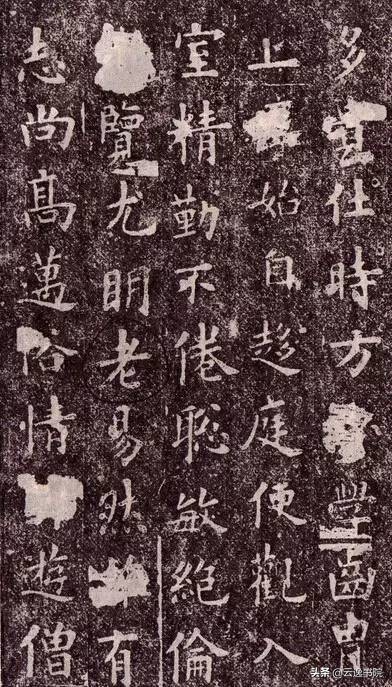 多宦仕時方學齒冑
上始自趍庭便觀入
室精勤不倦聡敏絕倫
覽尤眀老易然有
志尚髙邁俗情遊僧
头条 @云逸书院